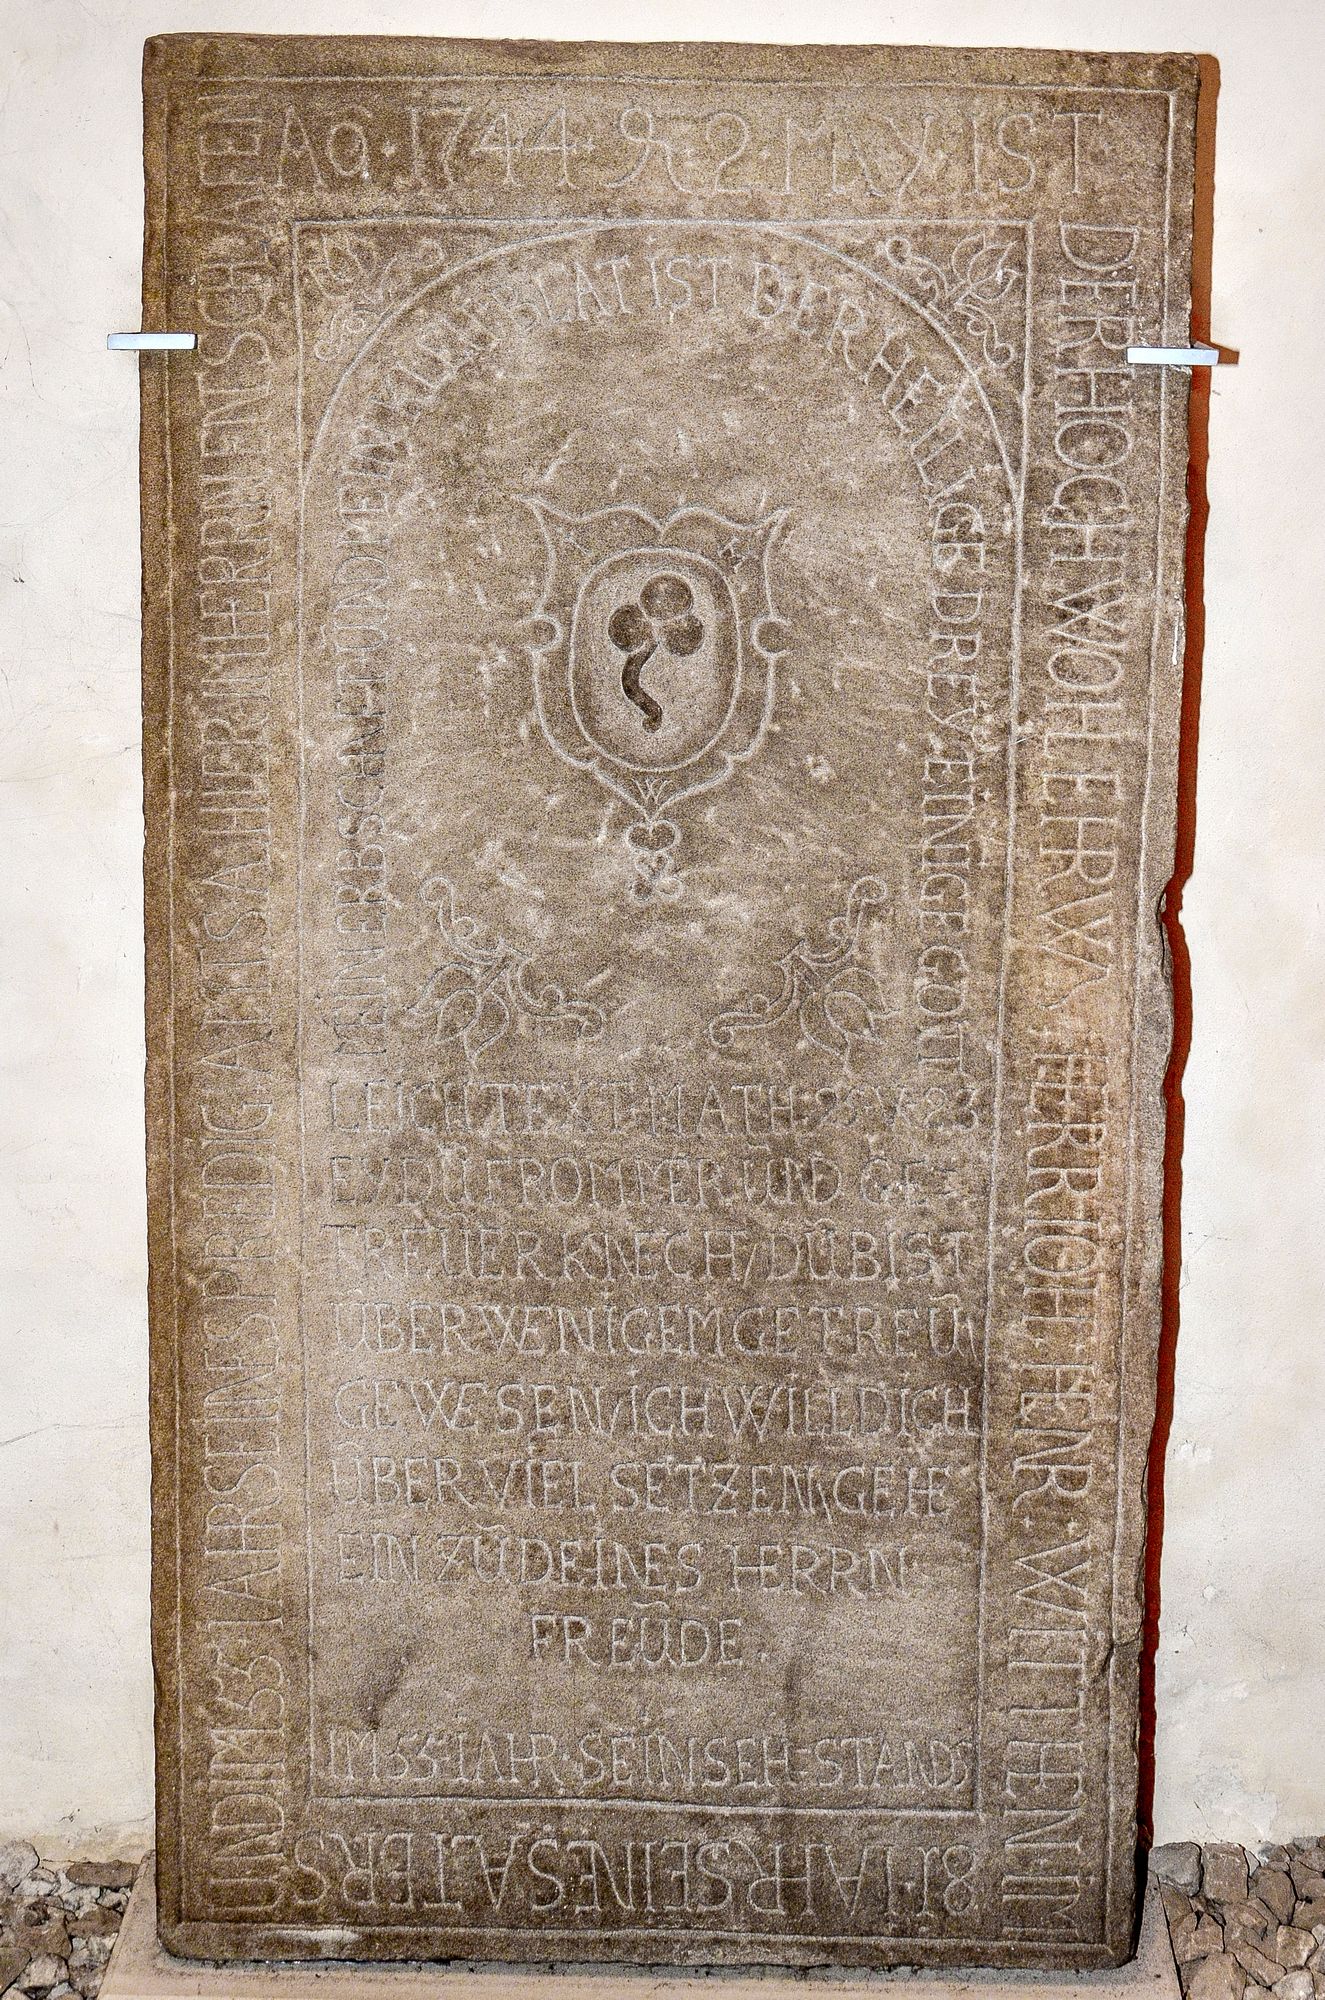 AO·1744·D·2·MAY·IST·
DER HOCH WOHLERW: HERR IOH: HENR: WITTEN: IM
81·IAHR SEINES ALTERS
UND IM 55·IAHR SEINES PREDIGAETSAHER IM HERRN ENTSCHLAFEN
MEIN ERBSCHAFT UND MEIN KLEH: BLAT IST DER HEILIGE DREYEINIGE GOTT
I H
W
LEICH TEXT·MATH: 25·V·23
EY DU FROMMER UND GE=
TREUER KNECHT/DU BIST
ÜBER WENIGEM GETREU
GEWESEN/ICH WILL DICH
ÜBER VIEL SETZEN/GEHE
EIN ZU DEINES HERRN
FREUDE·
IM 55·IAHR·SEINS EH=STANDS